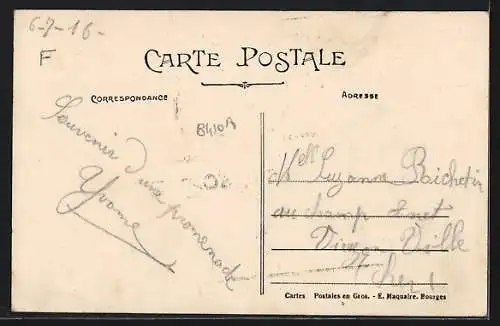 6-7-16-
F
CARTE POSTALE
CORRESPONDANCE
ADRESSE
8410A
Souvenir d'
une promenade
Yvonne
Melle Suzanne
au champ
Vierzon Ville
Cher
Cartes Postales en Gros. - E. Maquaire. Bourges